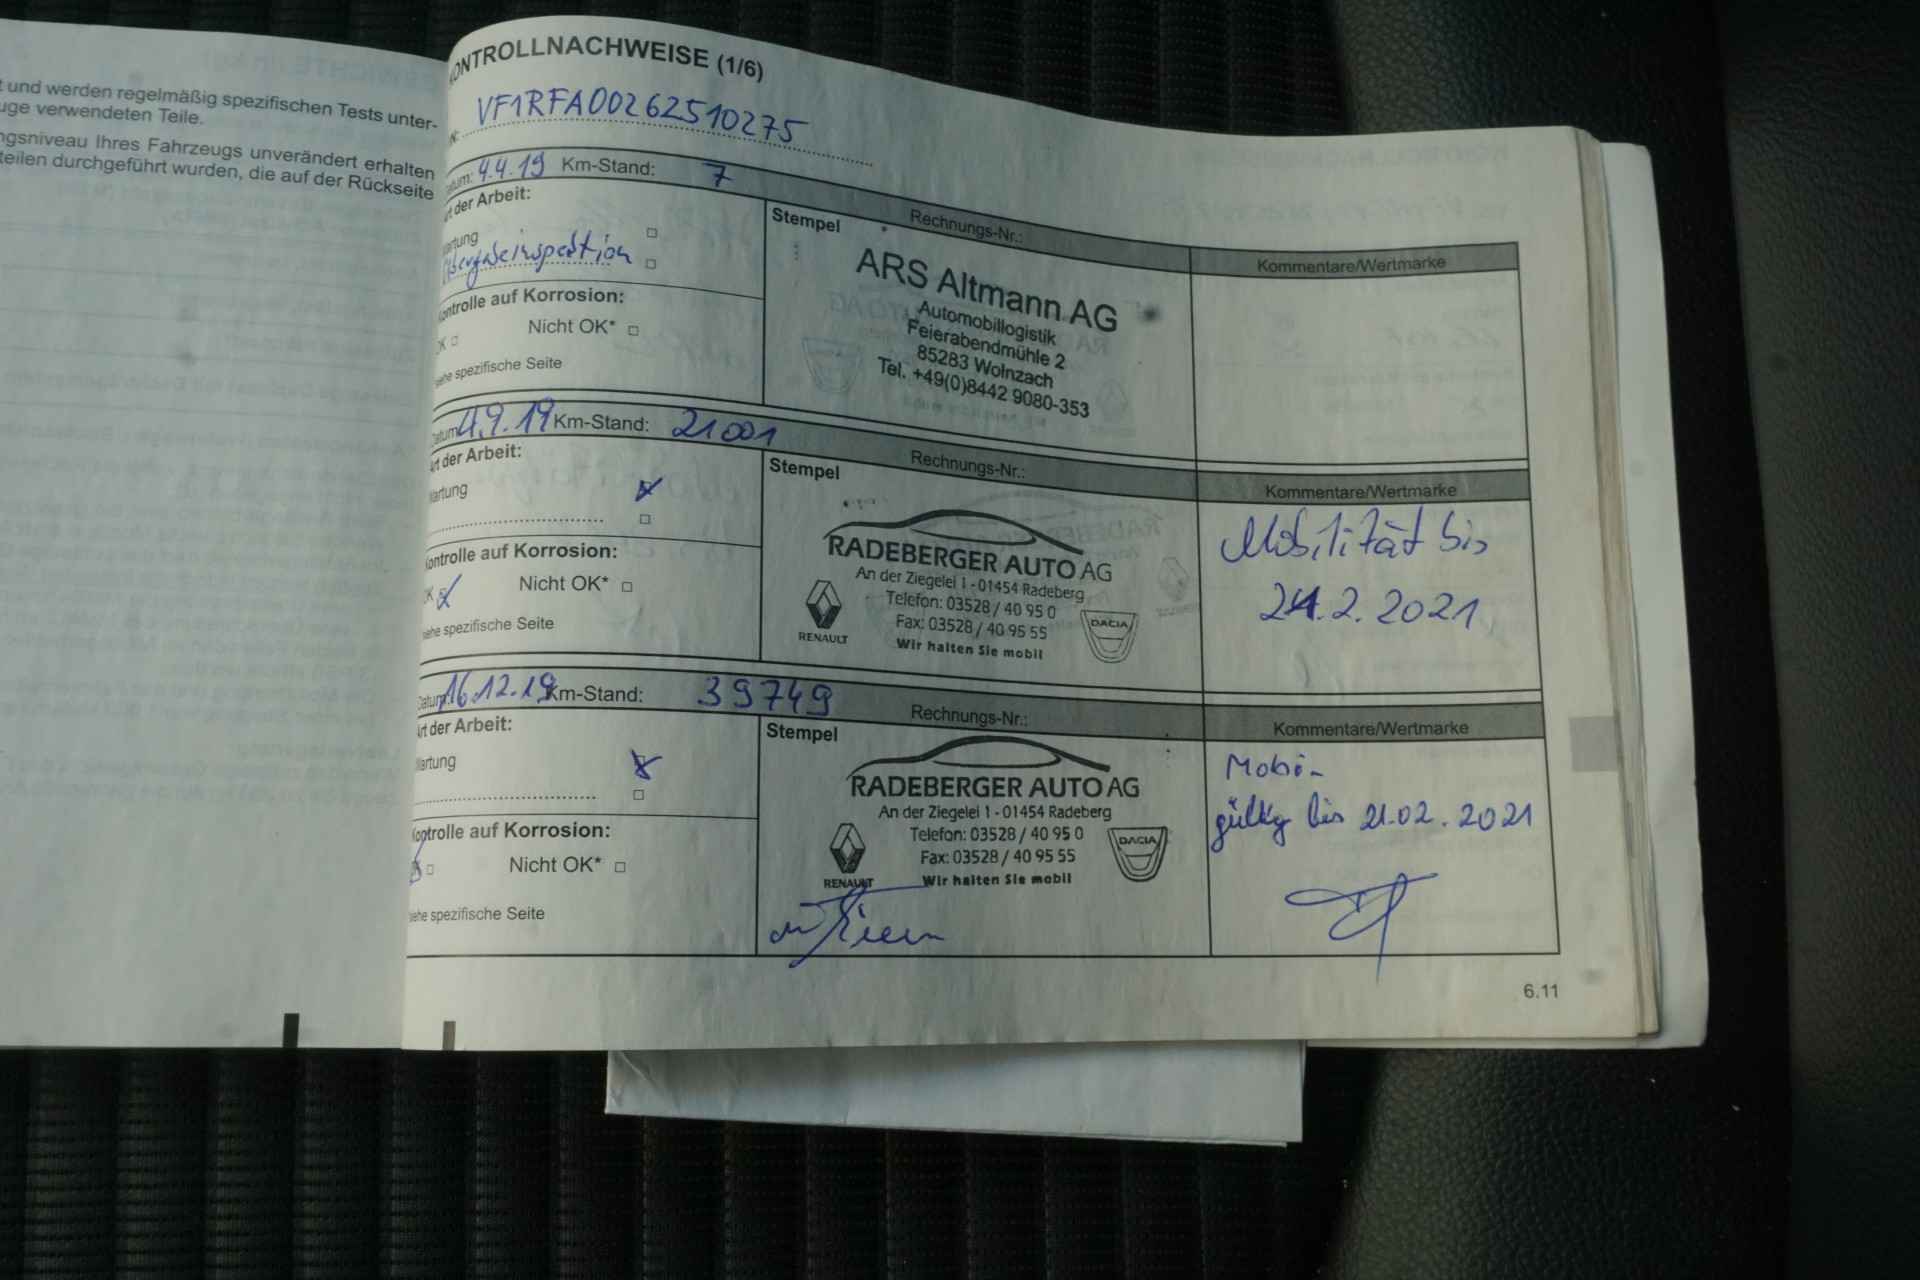 t und werden regelmäßig spezifischen Tests unter-
uge verwendeten Teile.
ngsniveau Ihres Fahrzeugs unverändert erhalten
teilen durchgeführt wurden, die auf der Rückseite
ONTROLLNACHWEISE (1/6)
N: VF1RFA00262510275
atum: 4.4.19 Km-Stand: 7
Rechnungs-Nr.:
Art der Arbeit:
artung
Übergabeinspektion
Kontrolle auf Korrosion:
OK Nicht OK*
siehe spezifische Seite
Stempel
ARS Altmann AG
Automobillogistik
Feierabendmühle 2
85283 Wolnzach
Tel. +49(0)8442 9080-353
Kommentare/Wertmarke
Datum 4.9.19 Km-Stand: 21001
Rechnungs-Nr.:
Art der Arbeit:
Wartung
Kontrolle auf Korrosion:
OK Nicht OK*
siehe spezifische Seite
Stempel
RADEBERGER AUTO AG
An der Ziegelei 1 - 01454 Radeberg
Telefon: 03528 / 40 95 0
Fax: 03528 / 40 95 55
Wir halten Sie mobil
RENAULT
DACIA
Kommentare/Wertmarke
Mobilität bis
21.2.2021
Datum: 16.12.19 Km-Stand: 39749
Rechnungs-Nr.:
Art der Arbeit:
Wartung
Kontrolle auf Korrosion:
Nicht OK*
siehe spezifische Seite
Stempel
RADEBERGER AUTO AG
An der Ziegelei 1 - 01454 Radeberg
Telefon: 03528 / 40 95 0
Fax: 03528 / 40 95 55
Wir halten Sie mobil
RENAULT
DACIA
Kommentare/Wertmarke
Mobi-
gültig bis 21.02.2021
6.11